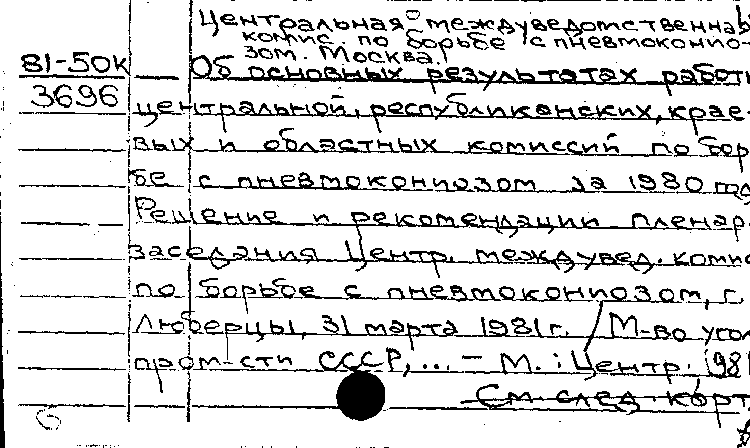 Центральная междуведомственная
комис. по борьбе с пневмоконио-
зом. Москва.
81-50к Об основных результатах работы
3696 центральной, республиканских, крае-
вых и областных комиссий по бор
бе с пневмокониозом за 1980 год
Решение и рекомендации пленар.
заседания Центр. междувед. комис
по борьбе с пневмокониозом, г.
Люберцы, 31 марта 1981г. / М-во угол
пром-сти СССР, ... – М. : Центр. 1981
См след карт